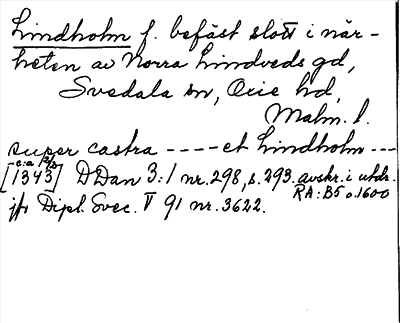 Lindholm f. befäst slott i när-
heten av Norra Lindveds gd,
Svedala sn, Oxie hd,
Malm. l.
super castra ---- et Lindholm ---
[1343] D Dan 3:1 nr. 298, s. 293. avskr. i utdr.
RA: B5 o. 1600
jfr Dipl. Svec. V 91 nr. 3622.